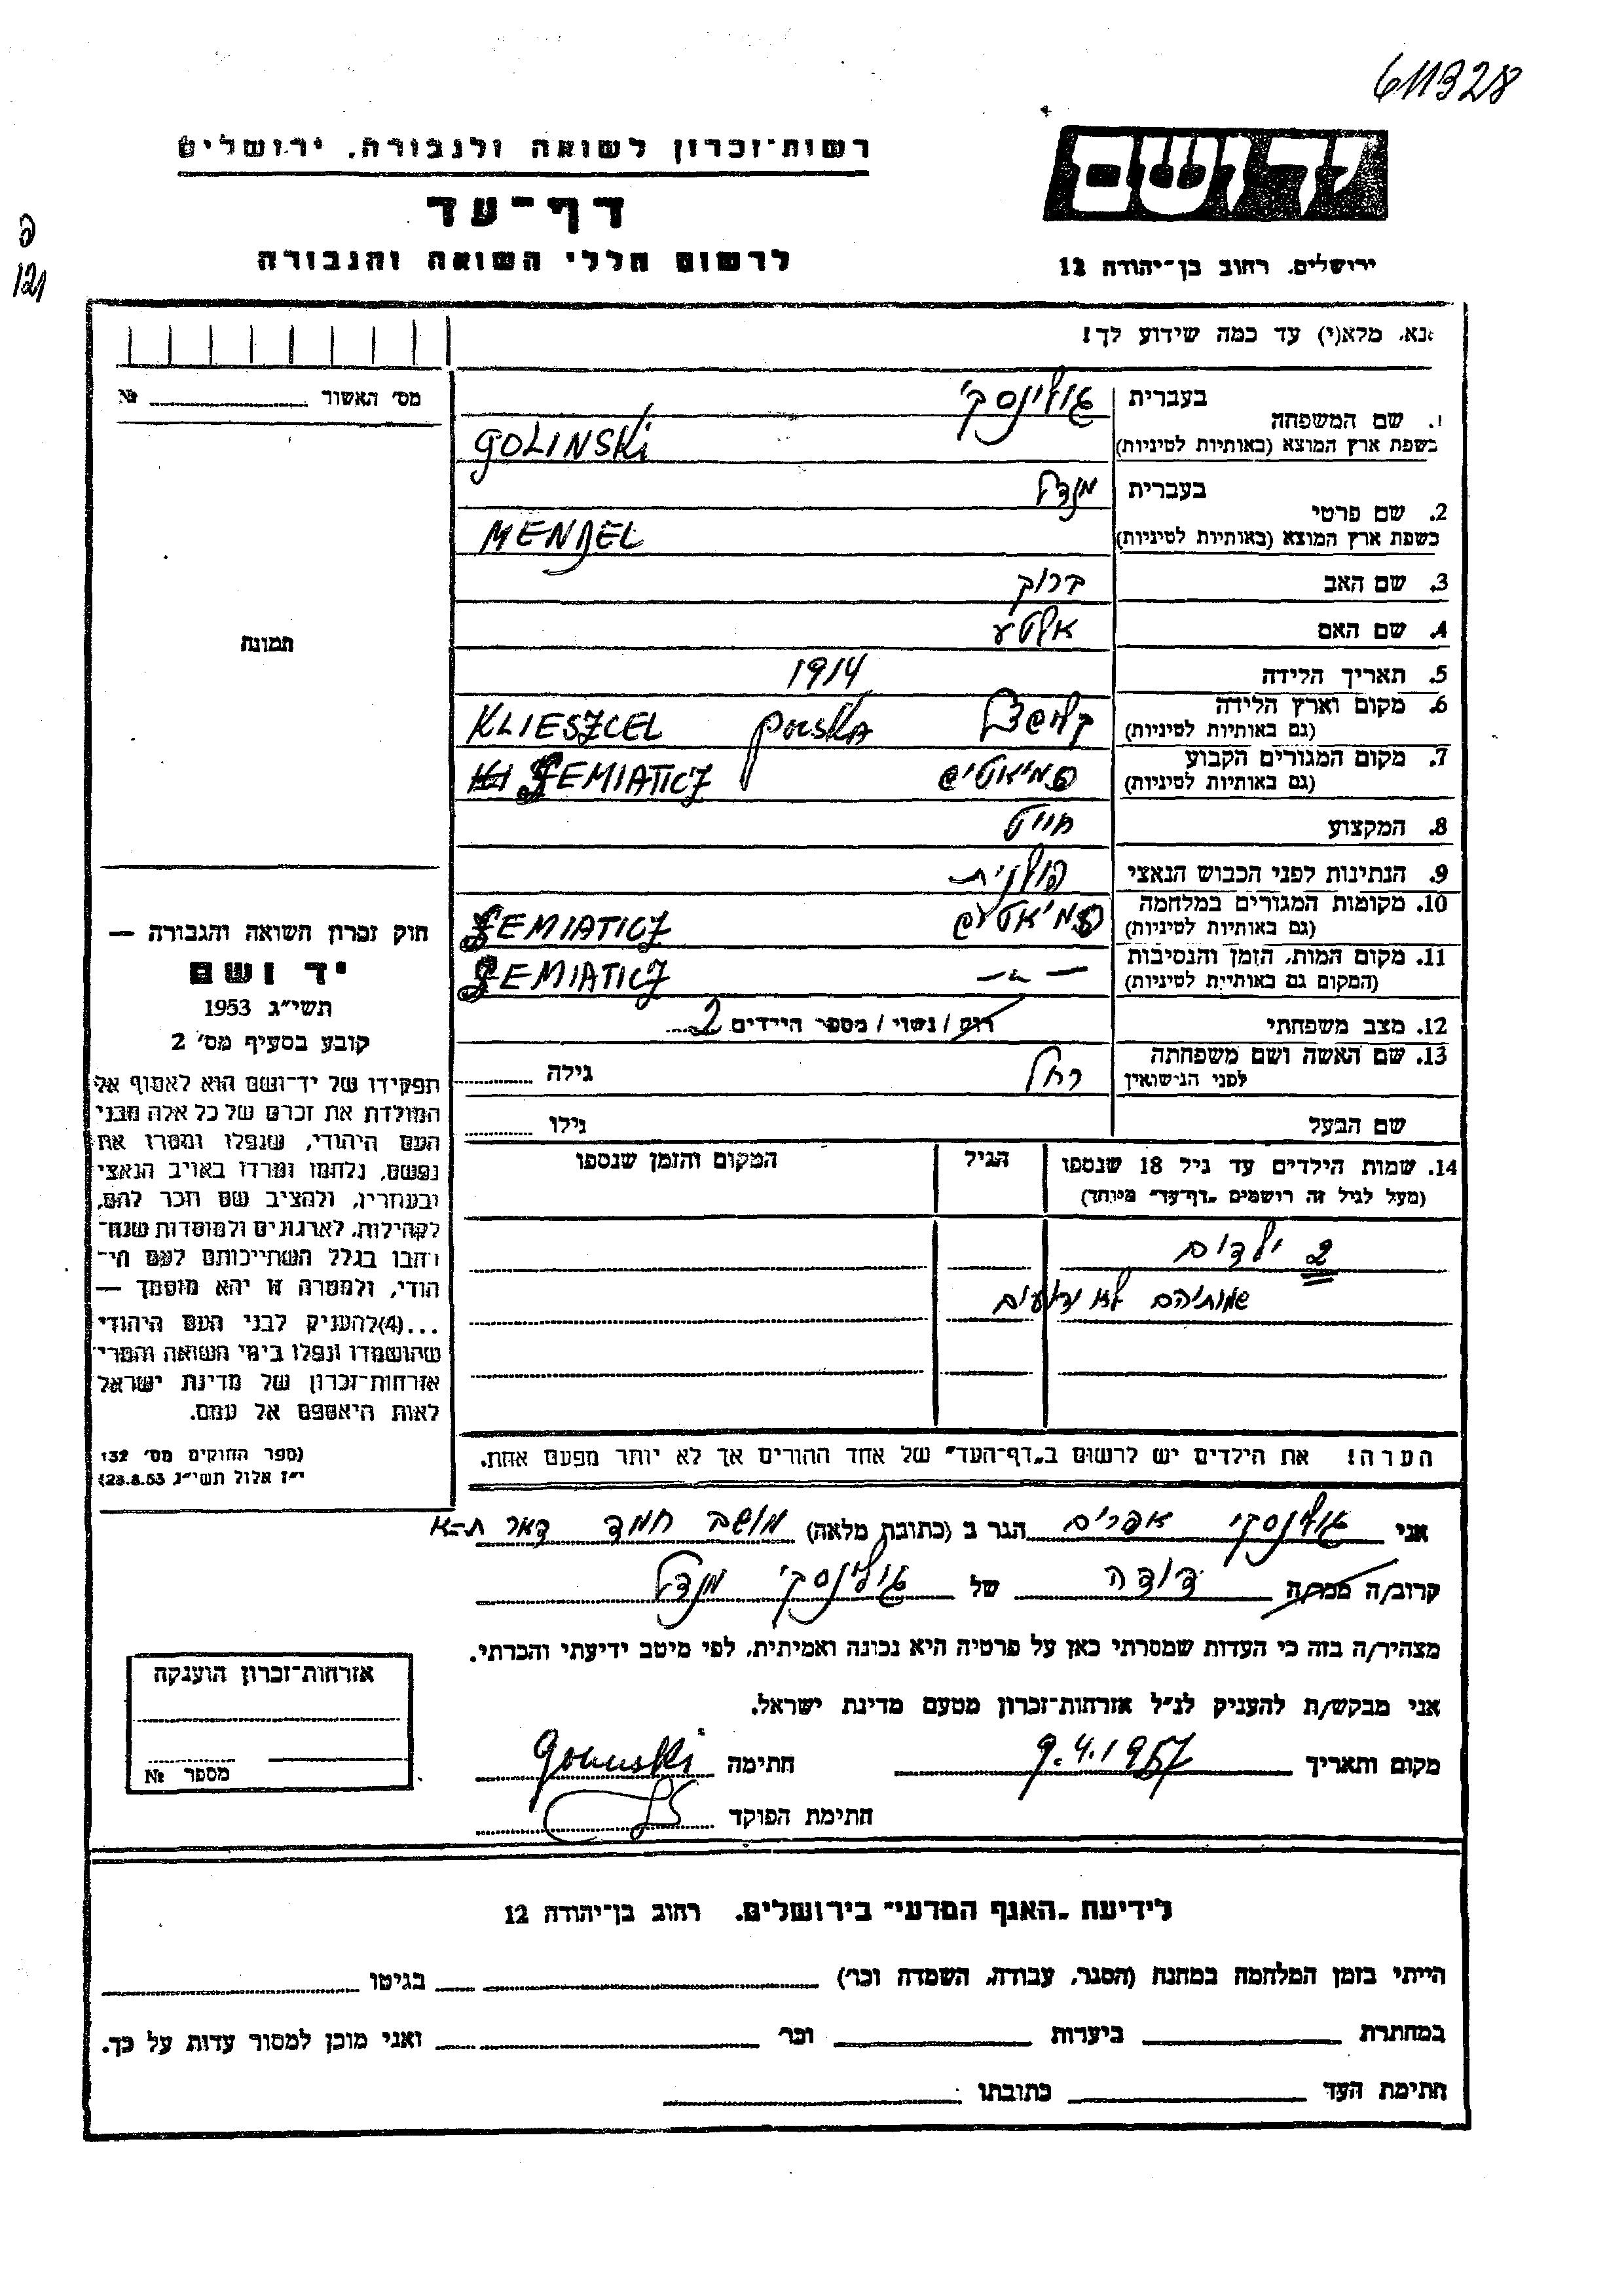 611328
רשות־זכרון לשואה ולגבורה, ירושלים
דף־עד
לרשום חללי השואה והגבורה
יד ושם
ירושלים, רחוב בן־יהודה 12
121
נא, מלא(י) עד כמה שידוע לך!
מס׳ האשור № 
1. שם המשפחה בעברית גולינסקי
בשפת ארץ המוצא (באותיות לטיניות) GOLINSKI
2. שם פרטי בעברית מנדל
בשפת ארץ המוצא (באותיות לטיניות) MENDEL
3. שם האב ברוך
4. שם האם אלטע
5. תאריך הלידה 1914
6. מקום וארץ הלידה
(גם באותיות לטיניות) קלשצל Polska KLIESZCEL
7. מקום המגורים הקבוע
(גם באותיות לטיניות) סמיאטיץ SEMIATICZ
8. המקצוע חייט
9. הנתינות לפני הכבוש הנאצי פולנית
10. מקומות המגורים במלחמה
(גם באותיות לטיניות) SEMIATICZ
11. מקום המות, הזמן והנסיבות
(המקום גם באותיות לטיניות) —״— SEMIATICZ
12. מצב משפחתי רווק / נשוי / מספר הילדים 2
13. שם האשה ושם משפחתה
לפני הנישואין רחל גילה
שם הבעל גילו
14. שמות הילדים עד גיל 18 שנספו
(מעל לגיל זה רושמים „דף־עד״ מיוחד)
הגיל
המקום והזמן שנספו
2 ילדים
שמותיהם לא ידועים
הערה! את הילדים יש לרשום ב„דף־העד״ של אחד ההורים אך לא יותר מפעם אחת.
תמונה
חוק זכרון השואה והגבורה —
יד ושם
תשי״ג 1953
קובע בסעיף מס׳ 2
תפקידו של יד־ושם הוא לאסוף אל
המולדת את זכרם של כל אלה מבני
העם היהודי, שנפלו ומסרו את
נפשם, נלחמו ומרדו באויב הנאצי
ובעוזריו, ולהציב שם וזכר להם,
לקהילות, לארגונים ולמוסדות שנח־
רבו בגלל השתייכותם לעם הי־
הודי, ולמטרה זו יהא מוסמך —
...(4)להעניק לבני העם היהודי
שהושמדו ונפלו בימי השואה והמרי
אזרחות־זכרון של מדינת ישראל
לאות היאספם אל עמם.
(ספר החוקים מס׳ 132,
י״ז אלול תשי״ג 28.8.53)
אני גולינסקי אפרים הגר ב (כתובת מלאה) מושב חמד דאר ת–א
קרוב/ה מכר/ה דודה של גולינסקי מנדל
מצהיר/ה בזה כי העדות שמסרתי כאן על פרטיה היא נכונה ואמיתית, לפי מיטב ידיעתי והכרתי.
אני מבקש/ת להעניק לנ״ל אזרחות־זכרון מטעם מדינת ישראל.
מקום ותאריך 9.4.1957 חתימה Golinski
חתימת הפוקד
אזרחות־זכרון הוענקה
מספר №
לידיעת „האגף המדעי״ בירושלים, רחוב בן־יהודה 12
הייתי בזמן המלחמה במחנה (הסגר, עבודה, השמדה וכר׳) בגיטו
במחתרת ביערות וכר׳ ואני מוכן למסור עדות על כך.
חתימת העד כתובתו